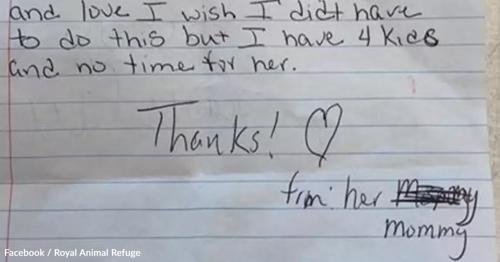 and love I wish I did't have
to do this but I have 4 kids
and no time for her.
Thanks! ♡
frm: her
mommy
Facebook / Royal Animal Refuge